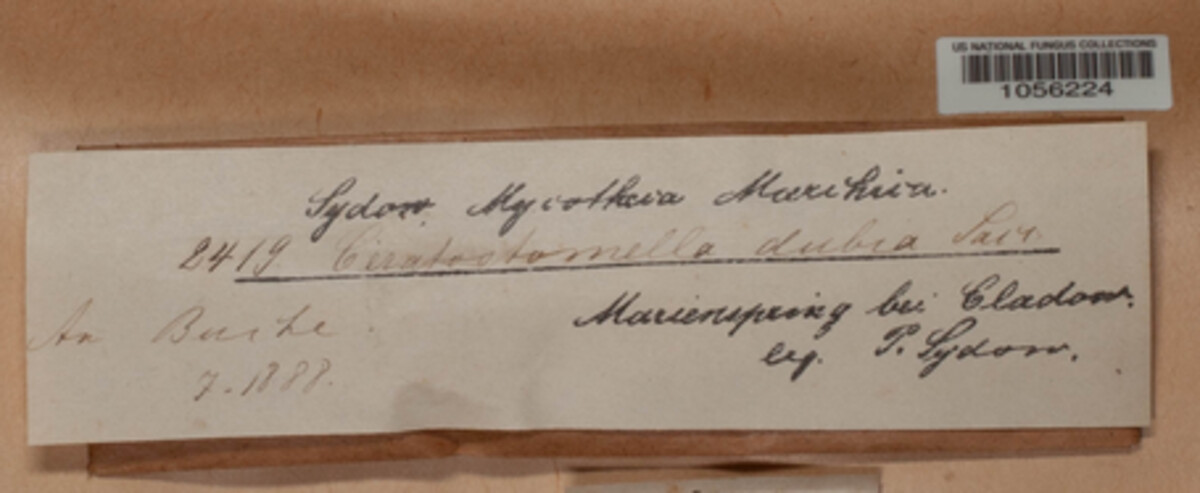 US NATIONAL FUNGUS COLLECTIONS
1056224
Sydow. Mycotheca Marchica.
2419 Ceratostomella dubia Sacc.
An Buche.
7. 1888.
Marienspring bei Cladow.
leg. P. Sydow.